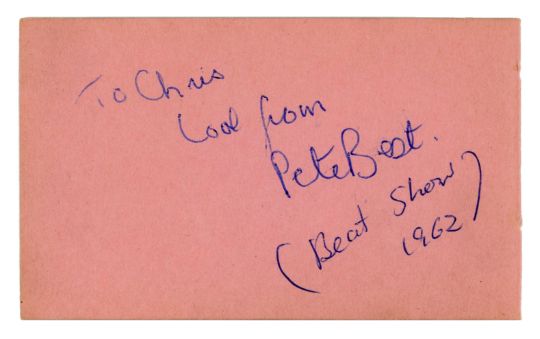 To Chris
Love from
Pete Best.
(Beat Show)
1962